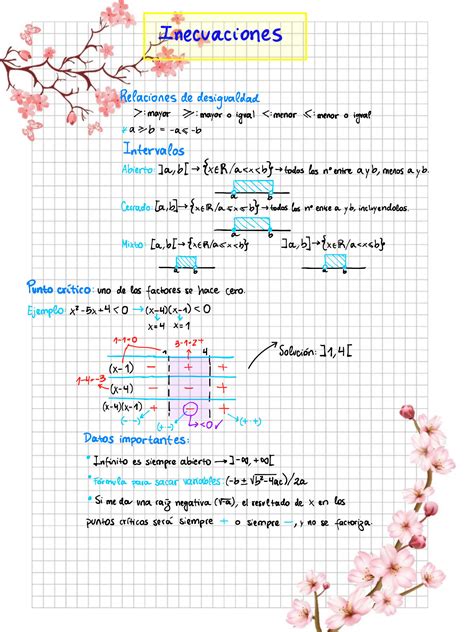 Inecuaciones
Relaciones de desigualdad
>: mayor ≥: mayor o igual <: menor ≤: menor o igual
* a ≥ b = -a ≤ -b
Intervalos
Abierto: ]a,b[ → {x∈R/a<x<b} → todos los nº entre a y b, menos a y b.
a b
Cerrado: [a,b] → {x∈R/a≤x≤b} → todos los nº entre a y b, incluyéndolos.
a b
Mixto: [a,b[ → {x∈R/a≤x<b} ]a,b] → {x∈R/a<x≤b}
a b a b
Punto crítico: uno de los factores se hace cero.
Ejemplo: x²-5x+4<0 → (x-4)(x-1)<0
x=4 x=1
1-1=0 3-1=2+
1 4 Solución: ]1,4[
(x-1) - + +
1-4=-3
(x-4) - - +
(x-4)(x-1) + - +
(- -) (+ -) <0 ✓ (+ +)
Datos importantes:
* Infinito es siempre abierto → ]-∞,+∞[
* Fórmula para sacar variables: (-b±√b²-4ac)/2a
* Si me da una raíz negativa (√-a), el resultado de x en los
puntos críticos será siempre + o siempre -, y no se factoriza.